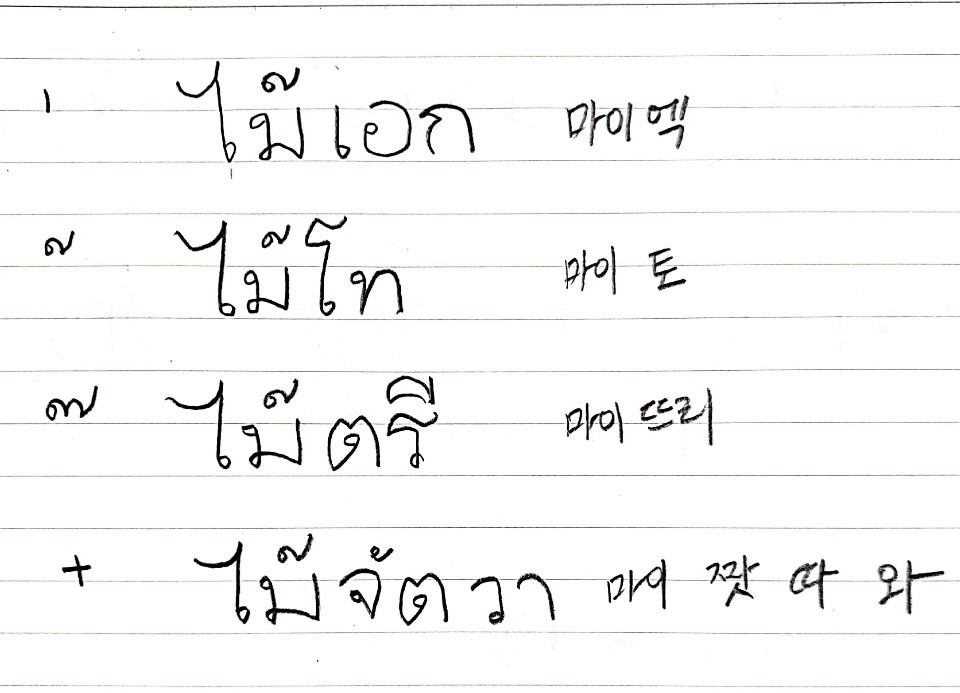 ่ ไม้เอก 마이 엑
้ ไม้โท 마이 토
๊ ไม้ตรี 마이 뜨리
๋ ไม้จัตวา 마이 짯 따 와